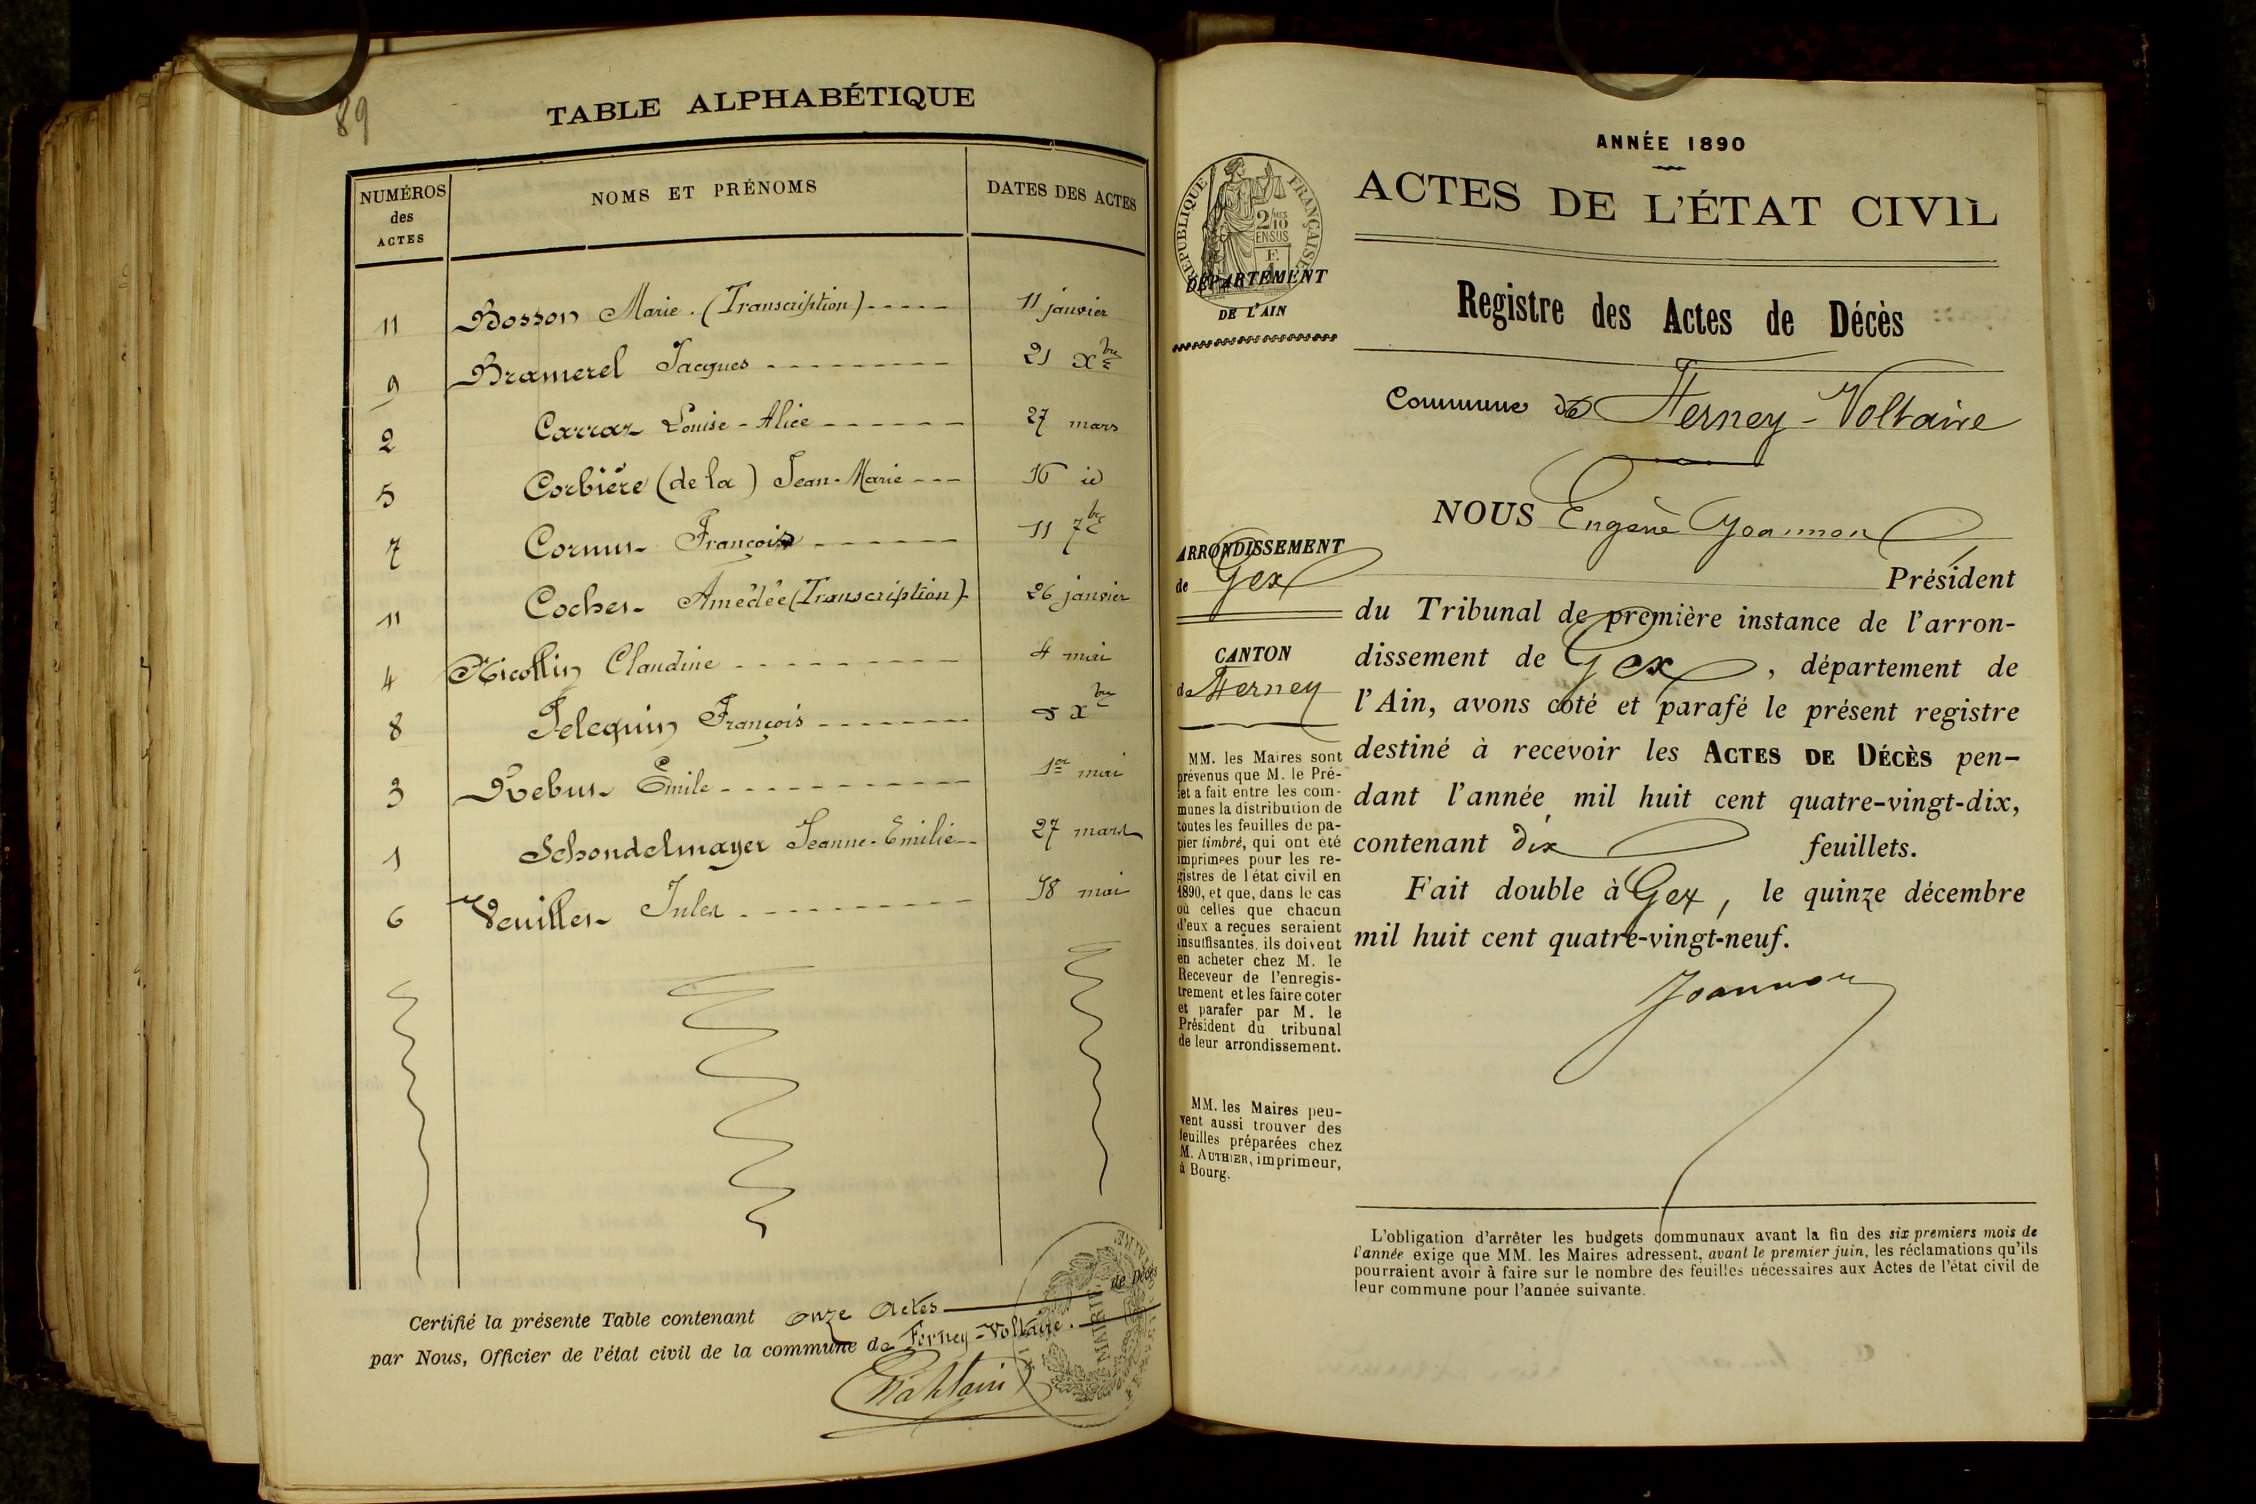 89
TABLE ALPHABÉTIQUE
NUMÉROS des ACTES
NOMS ET PRÉNOMS
DATES DES ACTES
11 Bosson Marie. (Transcription) 11 janvier
9 Bramerel Jacques 21 Xbre
2 Carraz Louise-Alice 27 mars
5 Corbière (de la) Jean-Marie 16 id
7 Cornu François 11 7bre
11 Cocher Amédée (Transcription) 26 janvier
4 Nicollin Claudine 4 mai
8 Pelequin François 5 Xbre
3 Rebus Émile 1er mai
1 Schondelmayer Jeanne-Emilie 27 mars
6 Veuillet Jules 18 mai
Certifié la présente Table contenant onze actes de Décès
par Nous, Officier de l'état civil de la commune de Ferney-Voltaire.
MAIRIE
ANNÉE 1890
ACTES DE L'ÉTAT CIVIL
RÉPUBLIQUE FRANÇAISE
2/10 EN SUS
DÉPARTEMENT
DE L'AIN
Registre des Actes de Décès
Commune de Ferney-Voltaire
ARRONDISSEMENT
de Gex
CANTON
de Ferney
MM. les Maires sont
prévenus que M. le Pré-
fet a fait entre les com-
munes la distribution de
toutes les feuilles de pa-
pier timbré, qui ont été
imprimées pour les re-
gistres de l'état civil en
1890, et que, dans le cas
où celles que chacun
d'eux a reçues seraient
insuffisantes, ils doivent
en acheter chez M. le
Receveur de l'enregis-
trement et les faire coter
et parafer par M. le
Président du tribunal
de leur arrondissement.
MM. les Maires peu-
vent aussi trouver des
feuilles préparées chez
M. AUTHIER, imprimeur,
à Bourg.
NOUS Eugène Joannon
Président
du Tribunal de première instance de l'arron-
dissement de Gex, département de
l'Ain, avons coté et parafé le présent registre
destiné à recevoir les ACTES DE DÉCÈS pen-
dant l'année mil huit cent quatre-vingt-dix,
contenant dix feuillets.
Fait double à Gex, le quinze décembre
mil huit cent quatre-vingt-neuf.
Joannon
L'obligation d'arrêter les budgets communaux avant la fin des six premiers mois de
l'année exige que MM. les Maires adressent, avant le premier juin, les réclamations qu'ils
pourraient avoir à faire sur le nombre des feuilles nécessaires aux Actes de l'état civil de
leur commune pour l'année suivante.